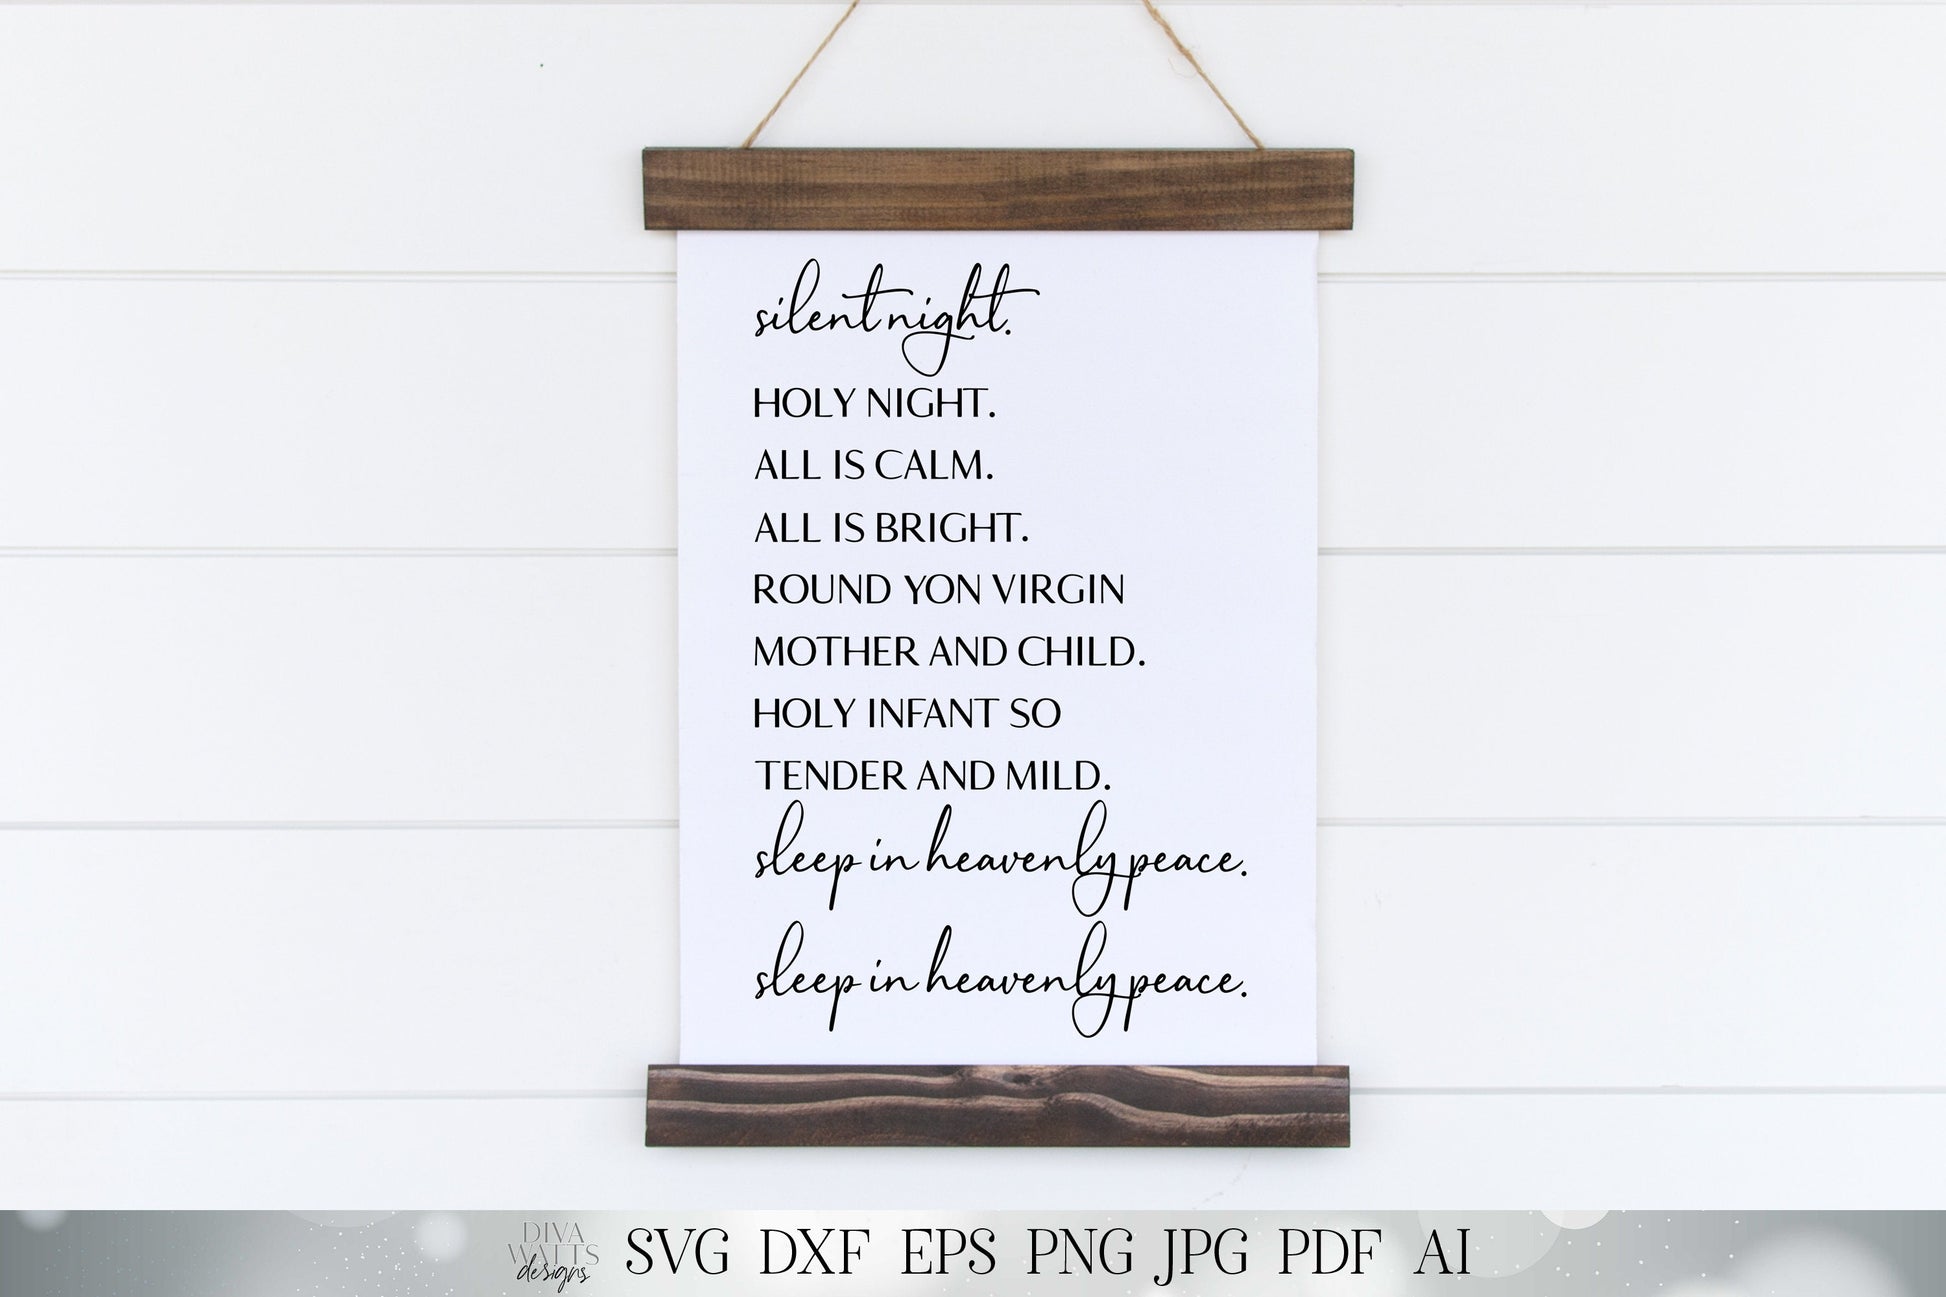 silent night.
HOLY NIGHT.
ALL IS CALM.
ALL IS BRIGHT.
ROUND YON VIRGIN
MOTHER AND CHILD.
HOLY INFANT SO
TENDER AND MILD.
sleep in heavenly peace.
sleep in heavenly peace.
DIVA
WATTS
designs
SVG DXF EPS PNG JPG PDF AI